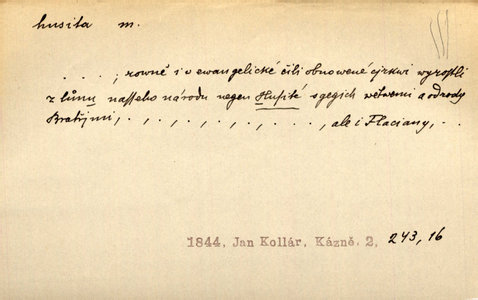 husita m.
. . . . ; rowně i w ewangelické čili obnowené cjrkwi wyrostli
z lůnu nasseho národu negen Husité s gegich wětwemi a odrody
Bratřjmi, . , . , . , . , . , . , . , ale i Flaciany, . .
1844, Jan Kollár, Kázně. 2, 243, 16